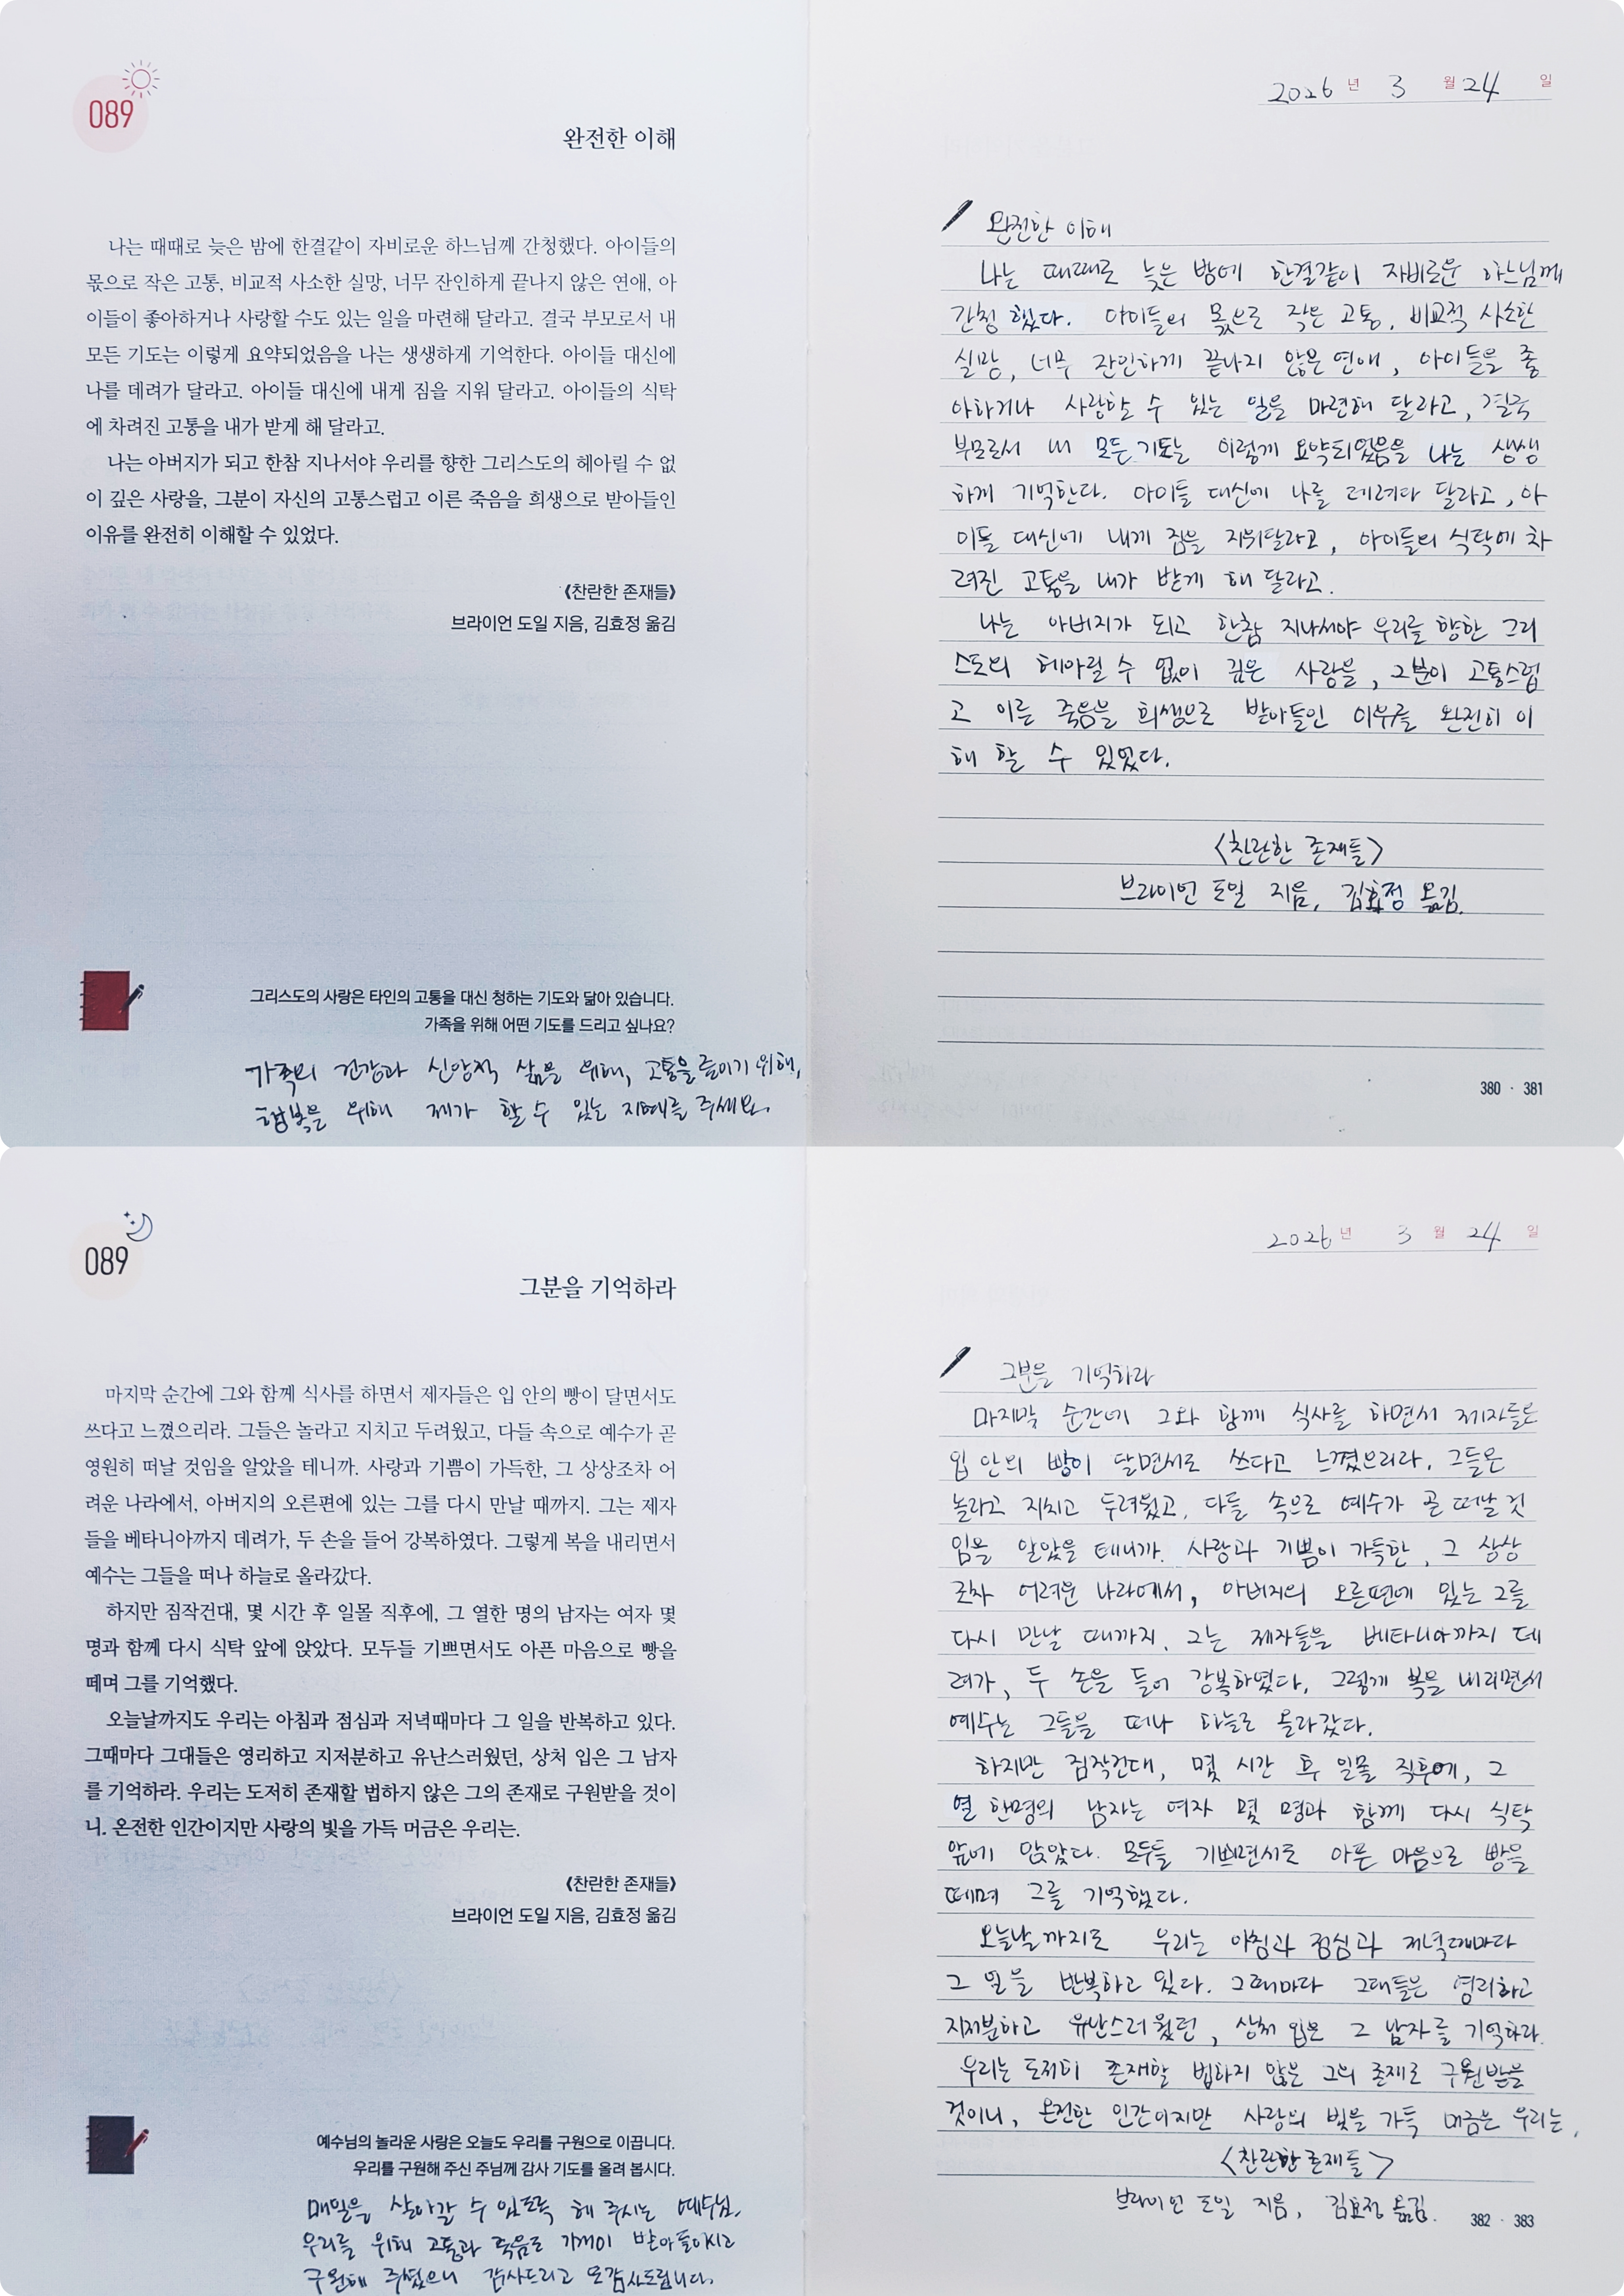 089
완전한 이해
나는 때때로 늦은 밤에 한결같이 자비로운 하느님께 간청했다. 아이들의
몫으로 작은 고통, 비교적 사소한 실망, 너무 잔인하게 끝나지 않은 연애, 아
이들이 좋아하거나 사랑할 수도 있는 일을 마련해 달라고. 결국 부모로서 내
모든 기도는 이렇게 요약되었음을 나는 생생하게 기억한다. 아이들 대신에
나를 데려가 달라고. 아이들 대신에 내게 짐을 지워 달라고. 아이들의 식탁
에 차려진 고통을 내가 받게 해 달라고.
나는 아버지가 되고 한참 지나서야 우리를 향한 그리스도의 헤아릴 수 없
이 깊은 사랑을, 그분이 자신의 고통스럽고 이른 죽음을 희생으로 받아들인
이유를 완전히 이해할 수 있었다.
《찬란한 존재들》
브라이언 도일 지음, 김효정 옮김
그리스도의 사랑은 타인의 고통을 대신 청하는 기도와 닮아 있습니다.
가족을 위해 어떤 기도를 드리고 싶나요?
가족의 건강과 신앙적 삶을 위해, 고통을 줄이기 위해,
행복을 위해 제가 할 수 있는 지혜를 주세요.
2026년 3월 24일
완전한 이해
나는 때때로 늦은 밤에 한결같이 자비로운 하느님께
간청했다. 아이들의 몫으로 작은 고통, 비교적 사소한
실망, 너무 잔인하게 끝나지 않은 연애, 아이들을 좋
아하거나 사랑할 수 있는 일을 마련해 달라고, 결국
부모로서 내 모든 기도는 이렇게 요약되었음을 나는 생생
하게 기억한다. 아이들 대신에 나를 데려다 달라고, 아
이들 대신에 내게 짐을 지워달라고, 아이들의 식탁에 차
려진 고통을 내가 받게 해 달라고.
나는 아버지가 되고 한참 지나서야 우리를 향한 그리
스도의 헤아릴 수 없이 깊은 사랑을, 그분이 고통스럽
고 이른 죽음을 희생으로 받아들인 이유를 완전히 이
해 할 수 있었다.
<찬란한 존재들>
브라이언 도일 지음, 김효정 옮김.
380 · 381
089
그분을 기억하라
마지막 순간에 그와 함께 식사를 하면서 제자들은 입 안의 빵이 달면서도
쓰다고 느꼈으리라. 그들은 놀라고 지치고 두려웠고, 다들 속으로 예수가 곧
영원히 떠날 것임을 알았을 테니까. 사랑과 기쁨이 가득한, 그 상상조차 어
려운 나라에서, 아버지의 오른편에 있는 그를 다시 만날 때까지. 그는 제자
들을 베타니아까지 데려가, 두 손을 들어 강복하였다. 그렇게 복을 내리면서
예수는 그들을 떠나 하늘로 올라갔다.
하지만 짐작건대, 몇 시간 후 일몰 직후에, 그 열한 명의 남자는 여자 몇
명과 함께 다시 식탁 앞에 앉았다. 모두들 기쁘면서도 아픈 마음으로 빵을
떼며 그를 기억했다.
오늘날까지도 우리는 아침과 점심과 저녁때마다 그 일을 반복하고 있다.
그때마다 그대들은 영리하고 지저분하고 유난스러웠던, 상처 입은 그 남자
를 기억하라. 우리는 도저히 존재할 법하지 않은 그의 존재로 구원받을 것이
니. 온전한 인간이지만 사랑의 빛을 가득 머금은 우리는.
《찬란한 존재들》
브라이언 도일 지음, 김효정 옮김
예수님의 놀라운 사랑은 오늘도 우리를 구원으로 이끕니다.
우리를 구원해 주신 주님께 감사 기도를 올려 봅시다.
매일을 살아갈 수 있도록 해 주시는 예수님.
우리를 위해 고통과 죽음도 기꺼이 받아들이시고
구원해 주셨으니 감사드리고 또 감사드립니다.
2026년 3월 24일
그분을 기억하라
마지막 순간에 그와 함께 식사를 하면서 제자들은
입 안의 빵이 달면서도 쓰다고 느꼈으리라. 그들은
놀라고 지치고 두려웠고, 다들 속으로 예수가 곧 떠날 것
임을 알았을 테니까. 사랑과 기쁨이 가득한, 그 상상
조차 어려운 나라에서, 아버지의 오른편에 있는 그를
다시 만날 때까지. 그는 제자들을 베타니아까지 데
려가, 두 손을 들어 강복하였다. 그렇게 복을 내리면서
예수는 그들을 떠나 하늘로 올라갔다.
하지만 짐작건대, 몇 시간 후 일몰 직후에, 그
열 한명의 남자는 여자 몇 명과 함께 다시 식탁
앞에 앉았다. 모두들 기쁘면서도 아픈 마음으로 빵을
떼며 그를 기억했다.
오늘날까지도 우리는 아침과 점심과 저녁때마다
그 일을 반복하고 있다. 그때마다 그대들은 영리하고
지저분하고 유난스러웠던, 상처 입은 그 남자를 기억하라.
우리는 도저히 존재할 법하지 않은 그의 존재로 구원받을
것이니, 온전한 인간이지만 사랑의 빛을 가득 머금은 우리는.
<찬란한 존재들>
브라이언 도일 지음, 김효정 옮김.
382 · 383